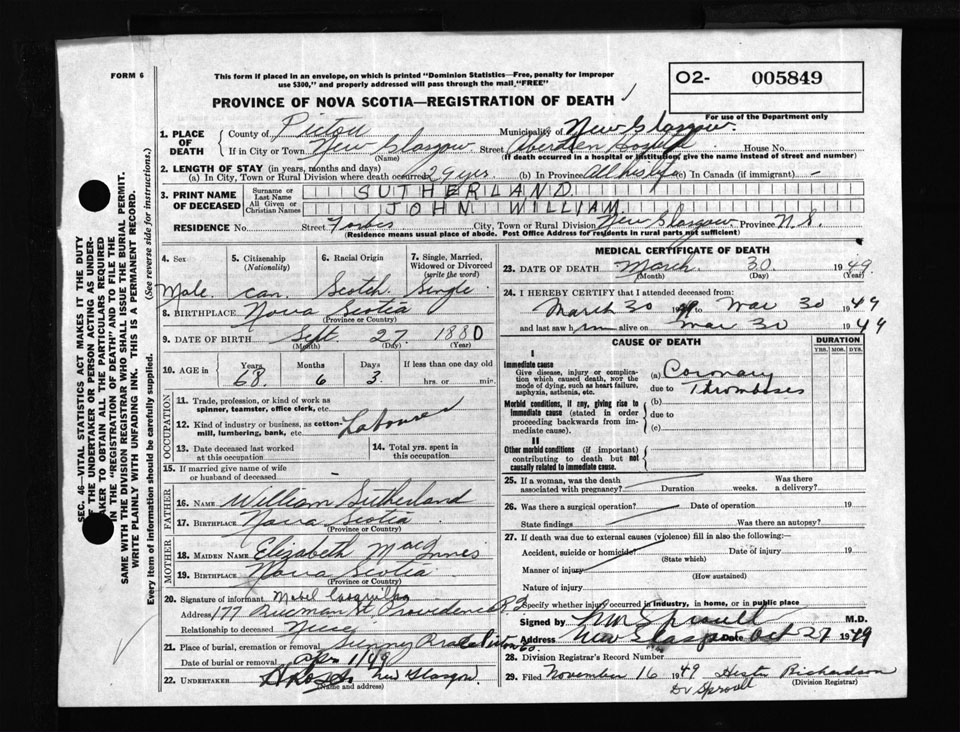 FORM 6
This form if placed in an envelope, on which is printed "Dominion Statistics—Free, penalty for improper
use $300," and properly addressed will pass through the mail "FREE"
O2- 005849
For use of the Department only
PROVINCE OF NOVA SCOTIA—REGISTRATION OF DEATH
SEC. 46—VITAL STATISTICS ACT MAKES IT THE DUTY
OF THE UNDERTAKER OR PERSON ACTING AS UNDER-
TAKER TO OBTAIN ALL THE PARTICULARS REQUIRED
IN THE "REGISTRATION OF DEATH" AND TO FILE THE
SAME WITH THE DIVISION REGISTRAR WHO SHALL ISSUE THE BURIAL PERMIT.
WRITE PLAINLY WITH UNFADING INK. THIS IS A PERMANENT RECORD.
Every item of information should be carefully supplied. (See reverse side for instructions.)
1. PLACE OF DEATH
County of Pictou Municipality of New Glasgow.
If in City or Town New Glasgow Street Aberdeen Hospital House No.
(Name) (If death occurred in a hospital or institution, give the name instead of street and number)
2. LENGTH OF STAY (in years, months and days)
(a) In City, Town or Rural Division where death occurred 29 yrs. (b) In Province All his life (c) In Canada (if immigrant) -
3. PRINT NAME OF DECEASED
Surname or Last Name SUTHERLAND
All Given or Christian Names JOHN WILLIAM
RESIDENCE No. Street Forbes City, Town or Rural Division New Glasgow. Province N.S.
(Residence means usual place of abode. Post Office Address for residents in rural parts not sufficient)
4. Sex 5. Citizenship (Nationality) 6. Racial Origin 7. Single, Married, Widowed or Divorced (write the word)
Male. Can. Scotch Single
8. BIRTHPLACE Nova Scotia
(Province or Country)
9. DATE OF BIRTH Sept. 27 1880
(Month) (Day) (Year)
10. AGE in Years Months Days If less than one day old
68 6 3 hrs. or min.
OCCUPATION
11. Trade, profession, or kind of work as spinner, teamster, office clerk, etc.
12. Kind of industry or business, as cotton-mill, lumbering, bank, etc.
Labourer
13. Date deceased last worked at this occupation
14. Total yrs. spent in this occupation.
15. If married give name of wife or husband of deceased -
FATHER
16. NAME William Sutherland
17. BIRTHPLACE Nova Scotia
(Province or Country)
MOTHER
18. MAIDEN NAME Elizabeth MacInnes
19. BIRTHPLACE Nova Scotia
(Province or Country)
20. Signature of informant Mabel
Address 177 St. Providence R.I.
Relationship to deceased Niece
21. Place of burial, cremation or removal Sunny Pictou Co.
Date of burial or removal Apr 1/49
22. UNDERTAKER New Glasgow
(Name and address)
MEDICAL CERTIFICATE OF DEATH
23. DATE OF DEATH March 30 1949.
(Month) (Day) (Year)
24. I HEREBY CERTIFY that I attended deceased from:
March 30 19 Mar 30 1949
and last saw him alive on Mar 30 1949
CAUSE OF DEATH DURATION
YRS. MOS. DYS.
I
Immediate cause
Give disease, injury or complication which caused death, not the mode of dying, such as heart failure, asphyxia, asthenia, etc.
(a) Coronary
due to Thromboses
Morbid conditions, if any, giving rise to immediate cause (stated in order proceeding backwards from immediate cause).
(b)
due to
(c)
II
Other morbid conditions (if important) contributing to death but not causally related to immediate cause.
25. If a woman, was the death associated with pregnancy? Duration weeks. Was there a delivery?
26. Was there a surgical operation? Date of operation 19
State findings Was there an autopsy?
27. If death was due to external causes (violence) fill in also the following:
Accident, suicide or homicide? Date of injury 19
(State which)
Manner of injury
(How sustained)
Nature of injury
Specify whether injury occurred in industry, in home, or in public place
Signed by Sproull M.D.
Address New Glasgow Date Oct 27 1949
28. Division Registrar's Record Number
29. Filed November 16 1949 Hester Richardson
(Division Registrar)
Dr Sproull